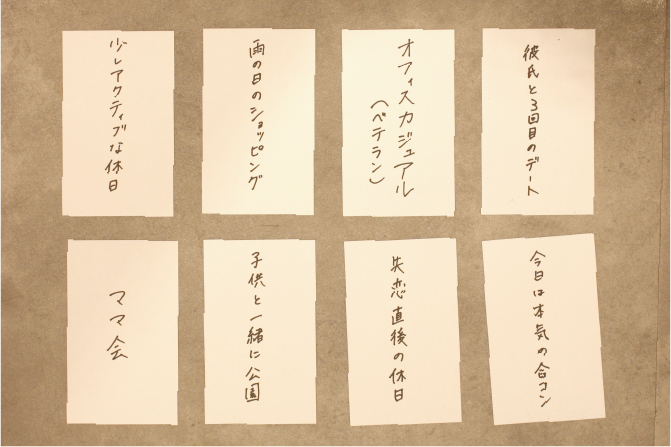 彼氏と3回目のデート
オフィスカジュアル
（ベテラン）
雨の日のショッピング
少しアクティブな休日
今日は本気の合コン
失恋直後の休日
子供と一緒に公園
ママ会